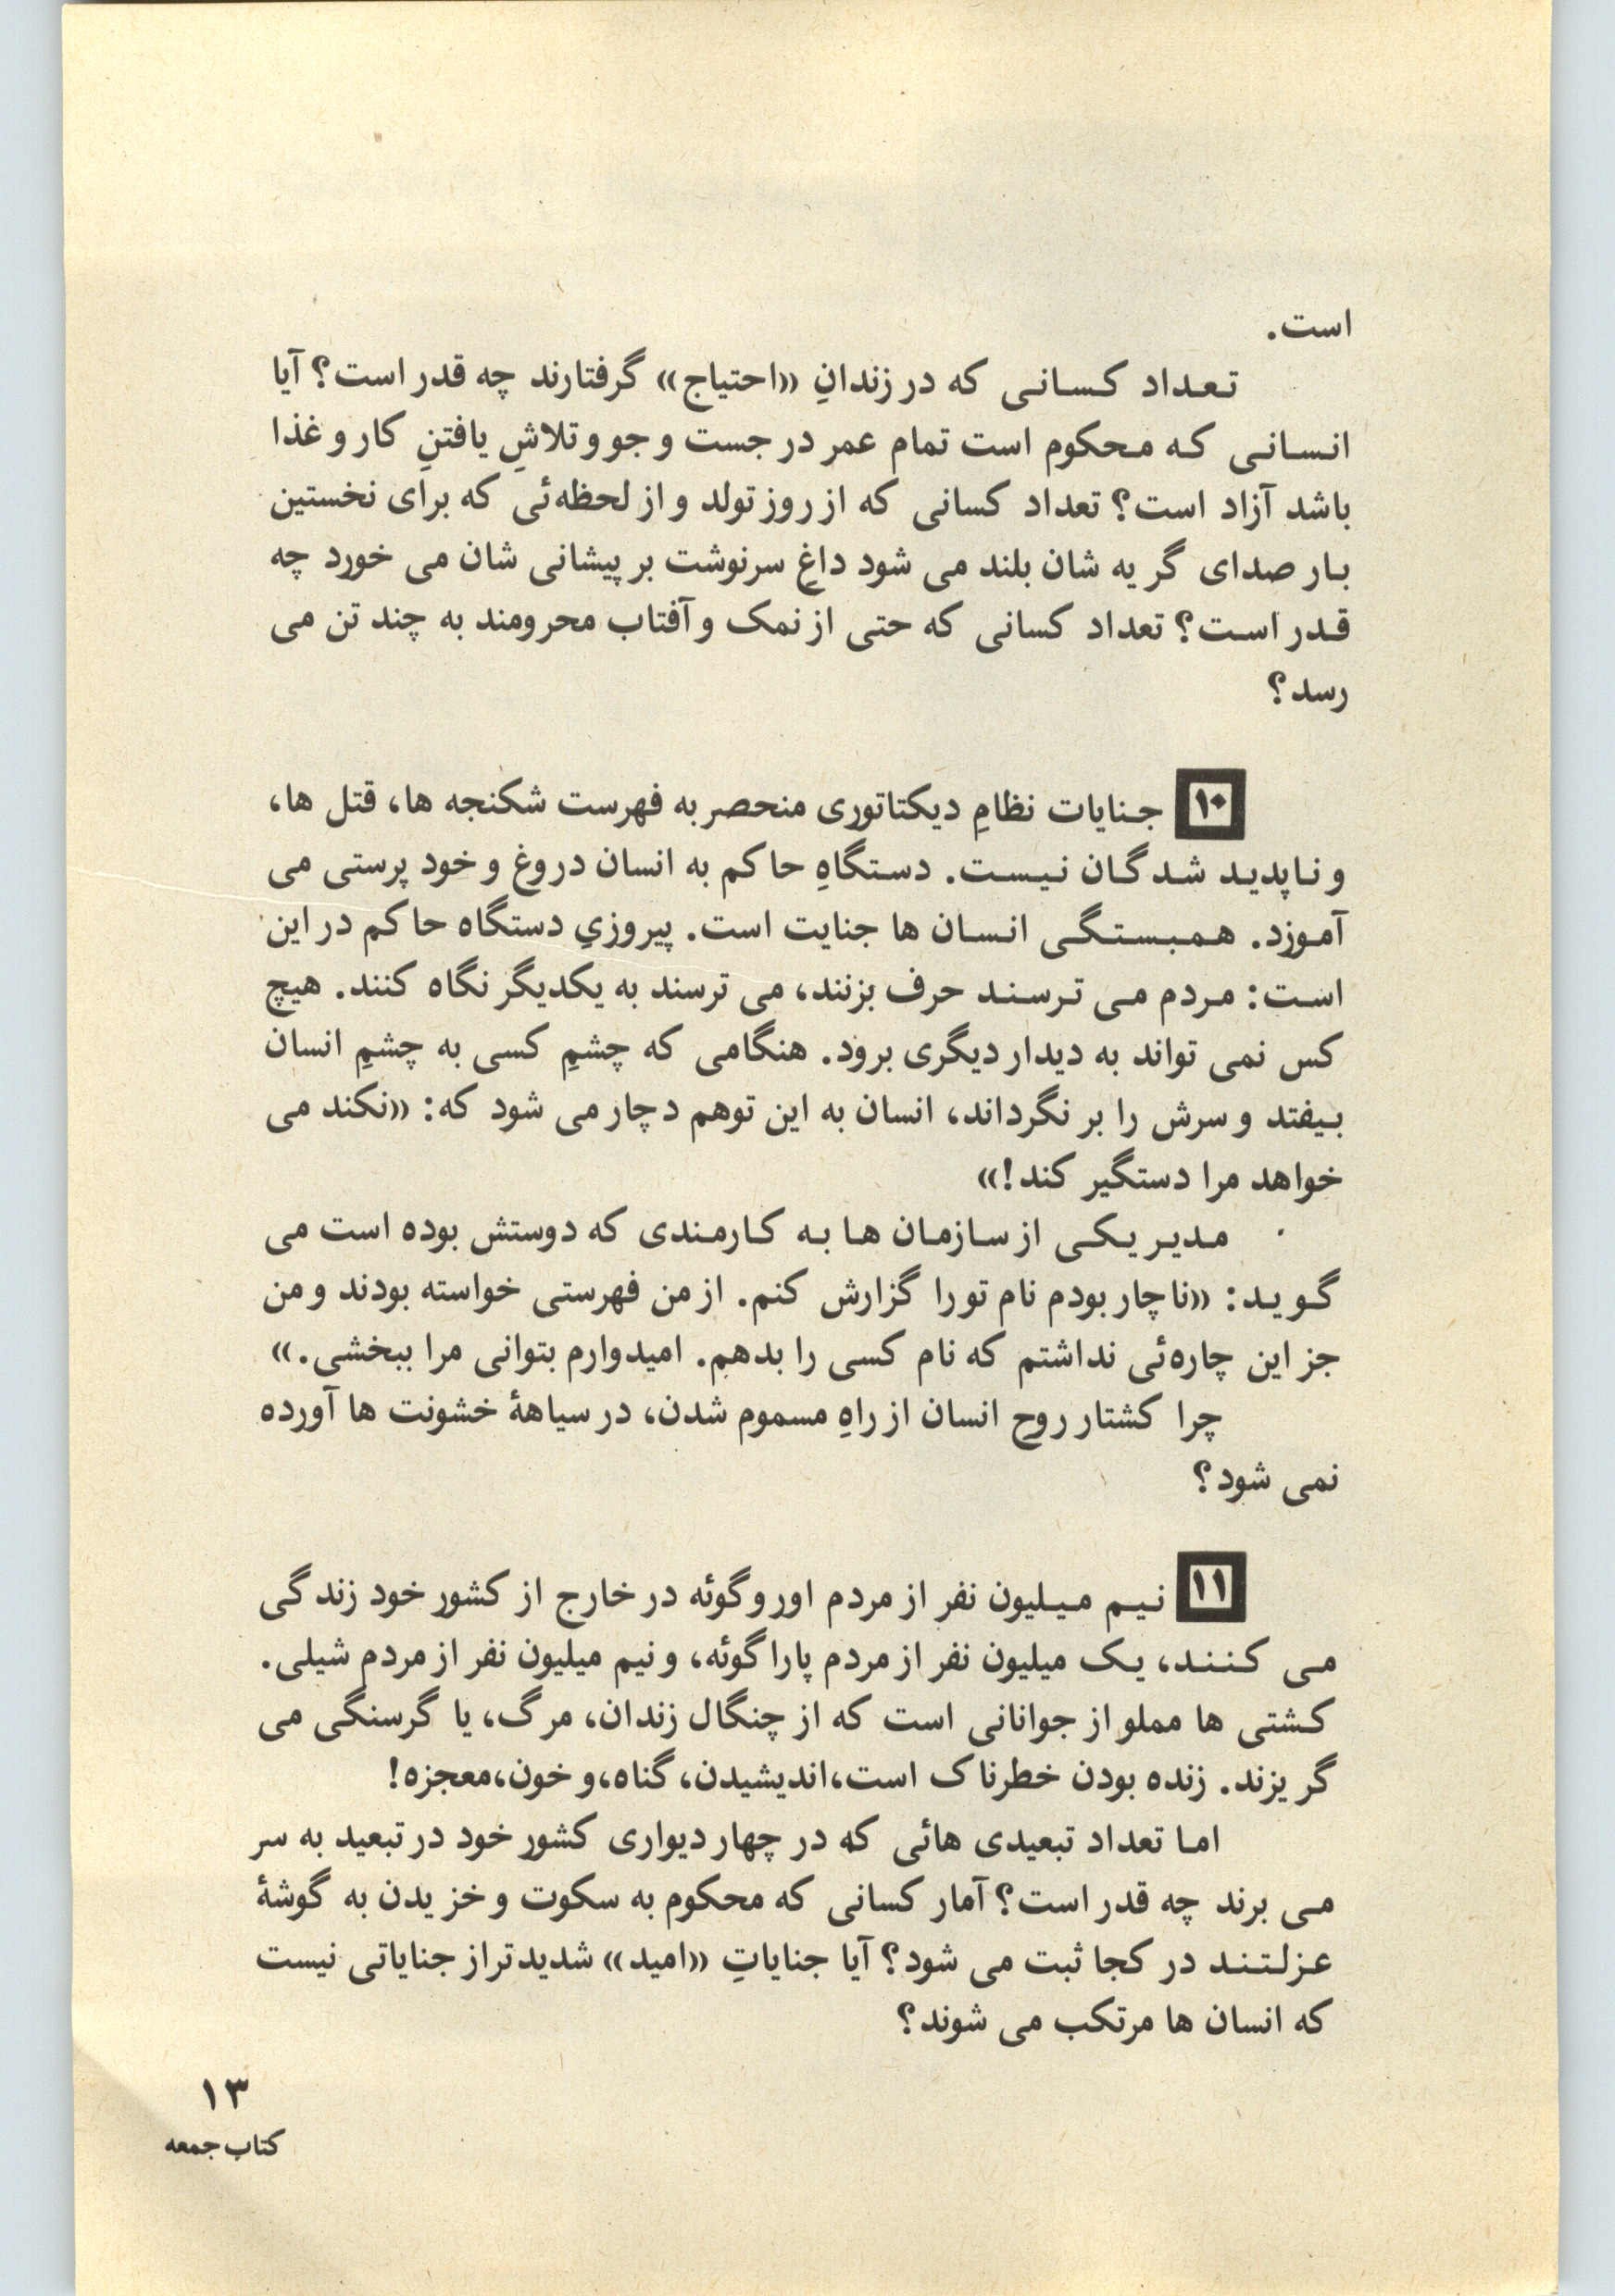 است.
تعداد کسانی که در زندانِ «احتیاج» گرفتارند چه قدر است؟ آیا
انسانی که محکوم است تمام عمر در جست و جو و تلاشِ یافتنِ کار و غذا
باشد آزاد است؟ تعداد کسانی که از روز تولد و از لحظه‌ئی که برای نخستین
بار صدای گریه شان بلند می شود داغِ سرنوشت بر پیشانی شان می خورد چه
قدر است؟ تعداد کسانی که حتی از نمک و آفتاب محرومند به چند تن می
رسد؟
۱۰ جنایات نظامِ دیکتاتوری منحصر به فهرست شکنجه ها، قتل ها،
و ناپدید شدگان نیست. دستگاهِ حاکم به انسان دروغ و خود پرستی می
آموزد. همبستگی انسان ها جنایت است. پیروزیِ دستگاه حاکم در این
است: مردم می ترسند حرف بزنند، می ترسند به یکدیگر نگاه کنند. هیچ
کس نمی تواند به دیدار دیگری برود. هنگامی که چشمِ کسی به چشمِ انسان
بیفتد و سرش را بر نگرداند، انسان به این توهم دچار می شود که: «نکند می
خواهد مرا دستگیر کند!»
مدیر یکی از سازمان ها به کارمندی که دوستش بوده است می
گوید: «ناچار بودم نام تو را گزارش کنم. از من فهرستی خواسته بودند و من
جز این چاره‌ئی نداشتم که نام کسی را بدهم. امیدوارم بتوانی مرا ببخشی.»
چرا کشتار روح انسان از راهِ مسموم شدن، در سیاههٔ خشونت ها آورده
نمی شود؟
۱۱ نیم میلیون نفر از مردم اوروگوئه در خارج از کشور خود زندگی
می کنند، یک میلیون نفر از مردم پاراگوئه، و نیم میلیون نفر از مردم شیلی.
کشتی ها مملو از جوانانی است که از چنگال زندان، مرگ، یا گرسنگی می
گریزند. زنده بودن خطرناک است،اندیشیدن، گناه،و خون،معجزه!
اما تعداد تبعیدی هائی که در چهار دیواری کشور خود در تبعید به سر
می برند چه قدر است؟ آمار کسانی که محکوم به سکوت و خزیدن به گوشهٔ
عزلتند در کجا ثبت می شود؟ آیا جنایاتِ «امید» شدیدتر از جنایاتی نیست
که انسان ها مرتکب می شوند؟
۱۳
کتاب جمعه